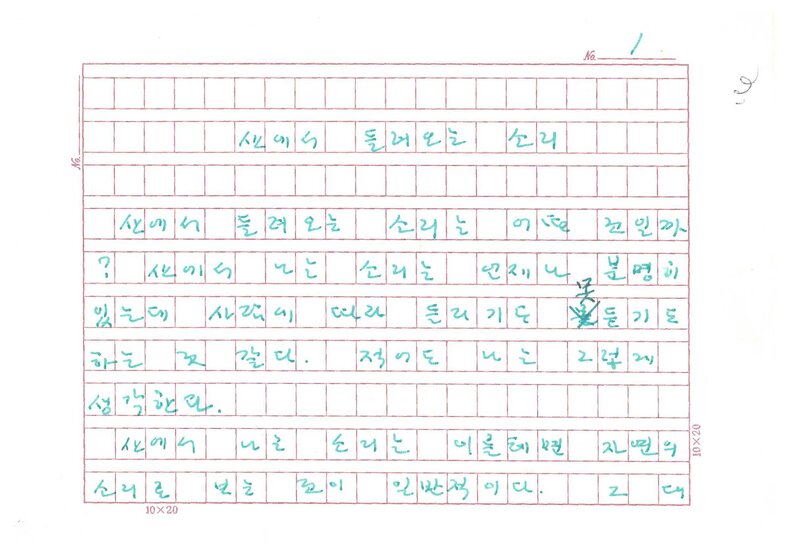 No. 1
No.
산에서 들려오는 소리
산에서 들려오는 소리는 어떤 것일까
? 산에서 나는 소리는 언제나 분명히
있는데 사람에 따라 들리기도 못듣기도
하는 것 같다. 적어도 나는 그렇게
생각한다.
산에서 나는 소리는 이를테면 자연의
소리로 보는 것이 일반적이다. 그 대
10×20
10×20